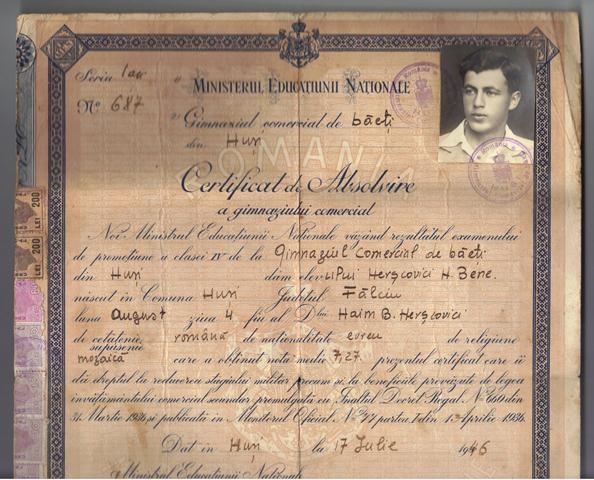 Seria
MINISTERUL EDUCAȚIUNII NATIONALE
No 687
Gimnaziul comercial de băeți
din Huși
ROMANIA
Certificat de Absolvire
a gimnaziului comercial
Noi Ministrul Educațiunii Nationale văzând rezultatul examenului
de promoțiune a clasei IV de la Gimnaziul Comercial de băeți
din Huși dăm elevului Herșcovici H. Bene.
născut în Comuna Huși Județul Fălciu
luna August ziua 4 fiu al Dlui Haim B. Herșcovici
de cetatenie română de naționalitate evreu de religiune
supusenie
mozaică care a obtinut nota medie 7,27 prezentul certificat care îi
dă dreptul la reducerea stagiului militar precum și la beneficiile prevăzute de legea
învățământului comercial secundar promulgată cu Înaltul Decret Regal No 660 din
31 Martie 1936 și publicată în Monitorul Oficial No 77 partea I din 1 Aprilie 1936.
Dat in Huși la 17 Iulie 1946
Ministrul Educatiunii Nationale
200 LEI
200 LEI